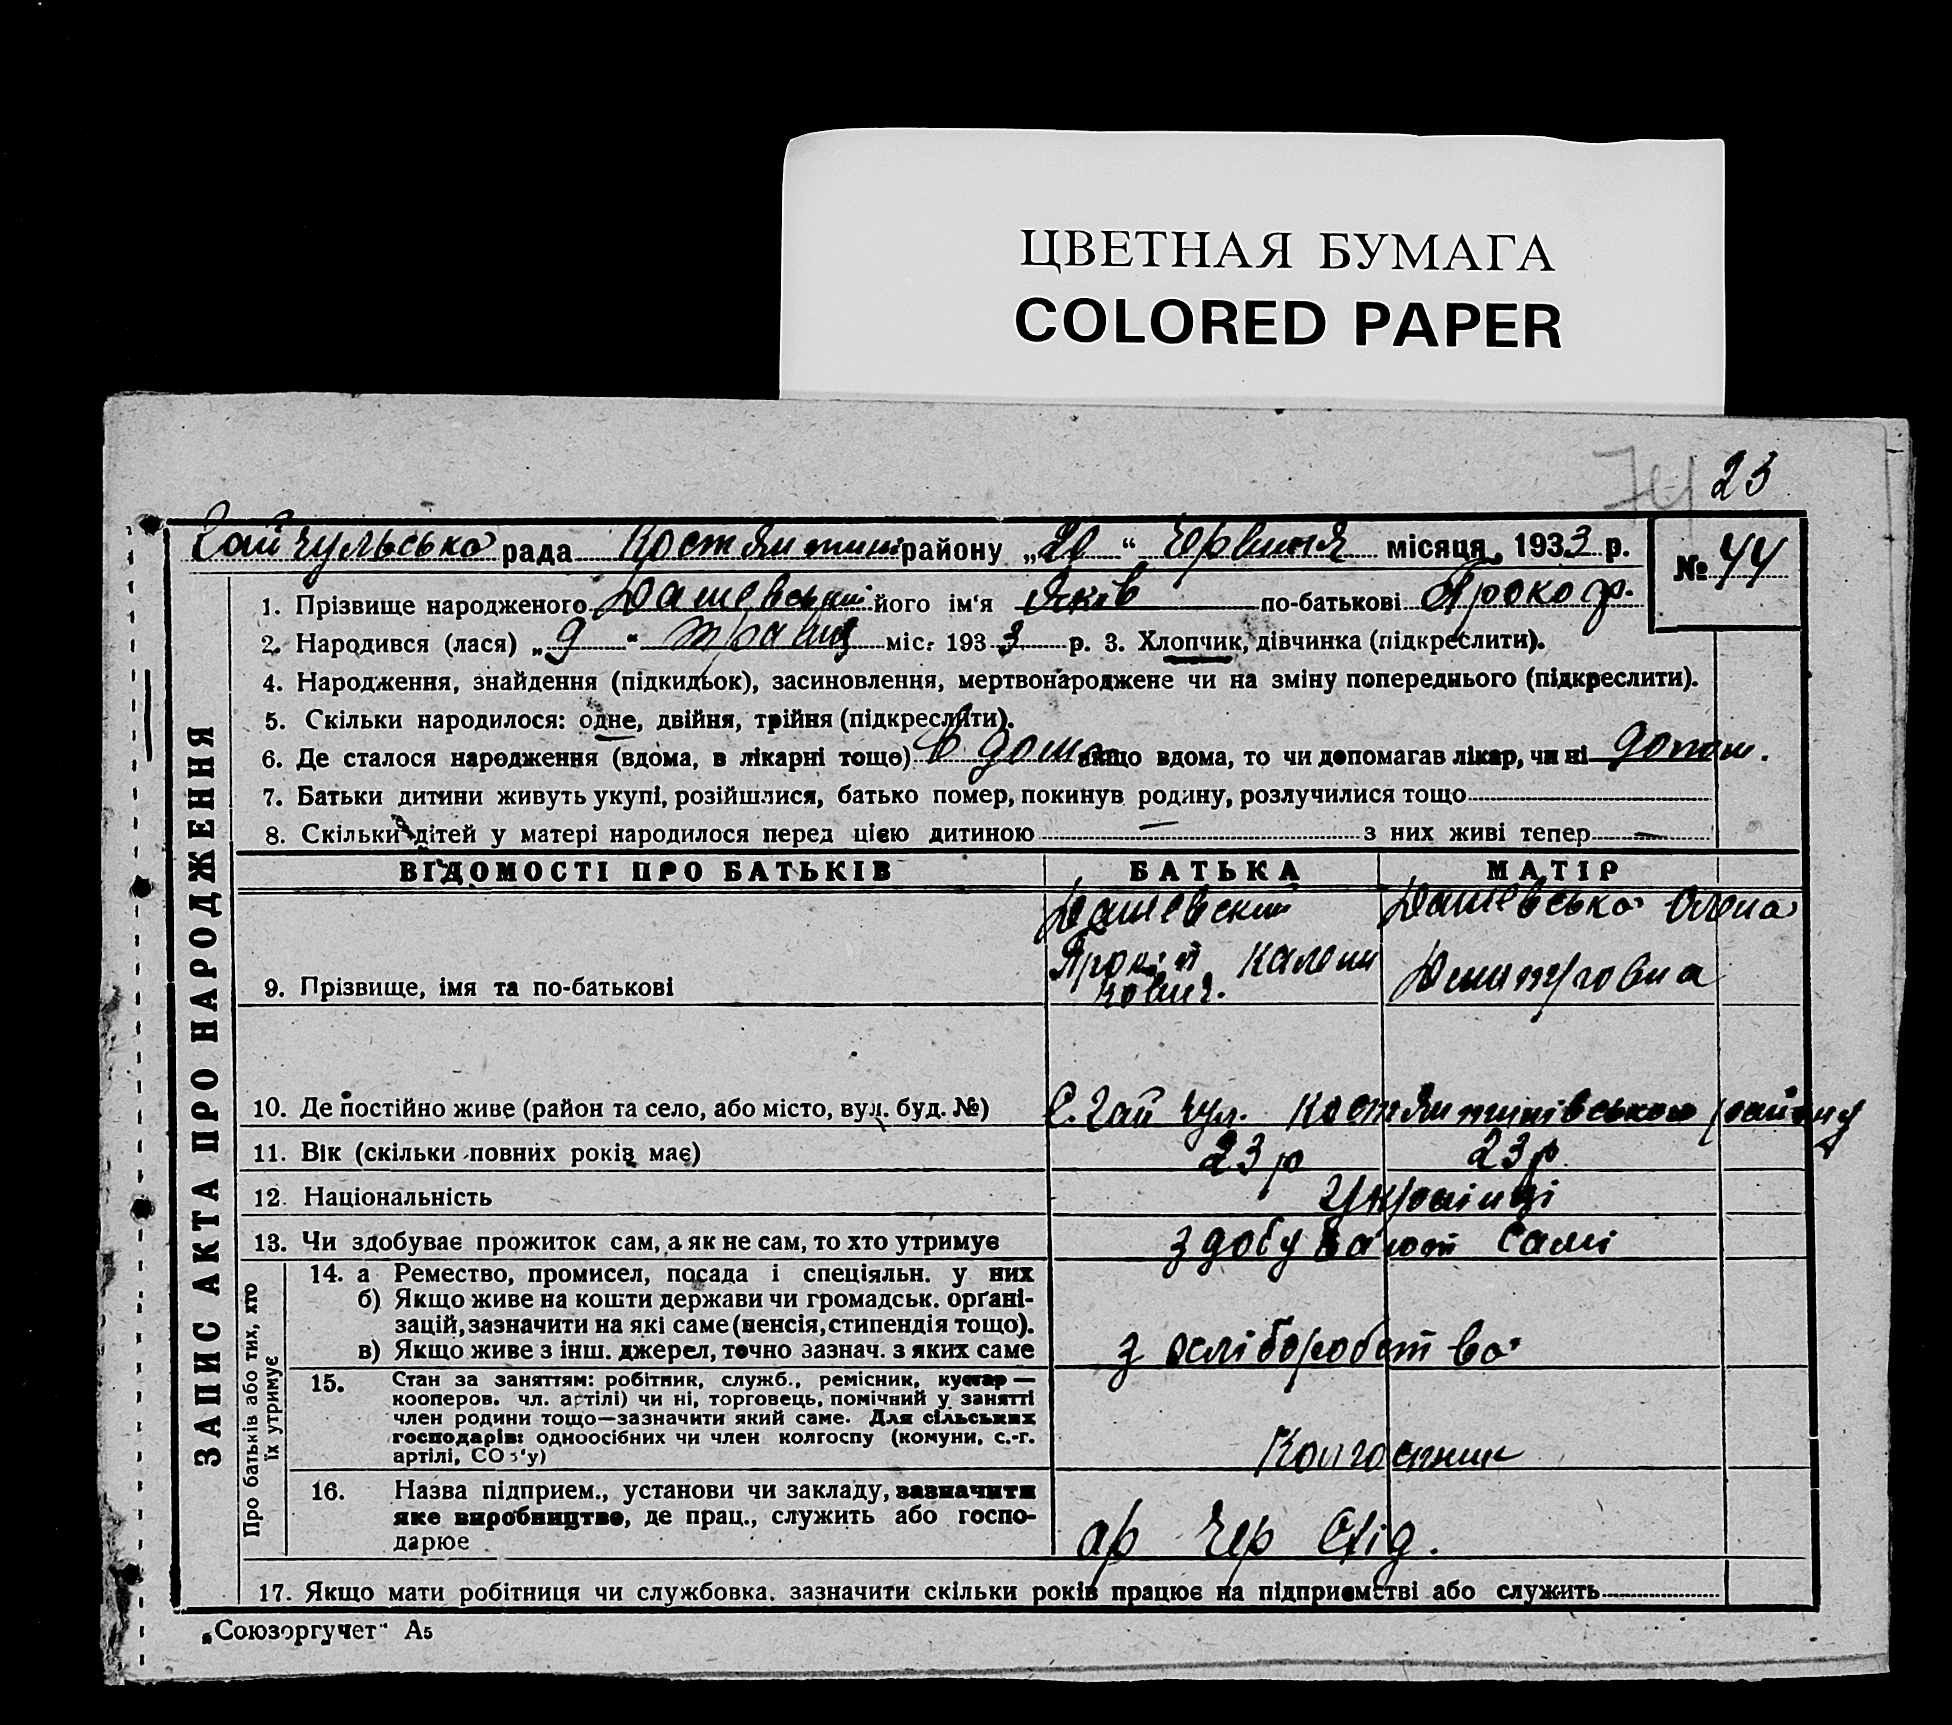 ЦВЕТНАЯ БУМАГА
COLORED PAPER
23
Гайчульська рада Костянтинів району „20“ червня місяця, 1933 р. № 44
1. Прізвище народженого Дашевський його ім'я Яків по-батькові Прокоф.
2. Народився (лася) „9“ травня міс. 1933 р. 3. Хлопчик, дівчинка (підкреслити).
4. Народження, знайдення (підкидьок), засиновлення, мертвонароджене чи на зміну попереднього (підкреслити).
5. Скільки народилося: одне, двійня, трійня (підкреслити).
6. Де сталося народження (вдома, в лікарні тощо) в дома якщо вдома, то чи допомагав лікар, чи ні допом.
7. Батьки дитини живуть укупі, розійшлися, батько помер, покинув родину, розлучилися тощо
8. Скільки дітей у матері народилося перед цією дитиною — з них живі тепер —
ЗАПИС АКТА ПРО НАРОДЖЕННЯ
ВІДОМОСТІ ПРО БАТЬКІВ БАТЬКА МАТІР
Дашевский Дашевська Олена
Калени
9. Прізвище, імя та по-батькові кович. Дмитровна
10. Де постійно живе (район та село, або місто, вул. буд. №) С. Гайчул. Костянтинівського району
11. Вік (скільки повних років має) 23 р 23 р.
12. Національність Українці
13. Чи здобуває прожиток сам, а як не сам, то хто утримує здобувают самі
Про батьків або тих, хто їх утримує
14. а Ремество, промисел, посада і спеціяльн. у них
б) Якщо живе на кошти держави чи громадськ. орґані-
зацій, зазначити на які саме (пенсія, стипендія тощо).
в) Якщо живе з інш. джерел, точно зазнач. з яких саме з осліборобства
15. Стан за заняттям: робітник, служб., ремісник, кустар —
кооперов. чл. артілі) чи ні, торговець, помічний у занятті
член родини тощо—зазначити який саме. Для сільських
господарів: одноосібних чи член колгоспу (комуни, с.-г.
артілі, СОЗ'у) Колгоспник
16. Назва підприєм., установи чи закладу, зазначити
яке виробництво, де прац., служить або госпо-
дарює ар Чер Слід.
17. Якщо мати робітниця чи службовка, зазначити скільки років працює на підприємстві або служить
„Союзоргучет“ А5